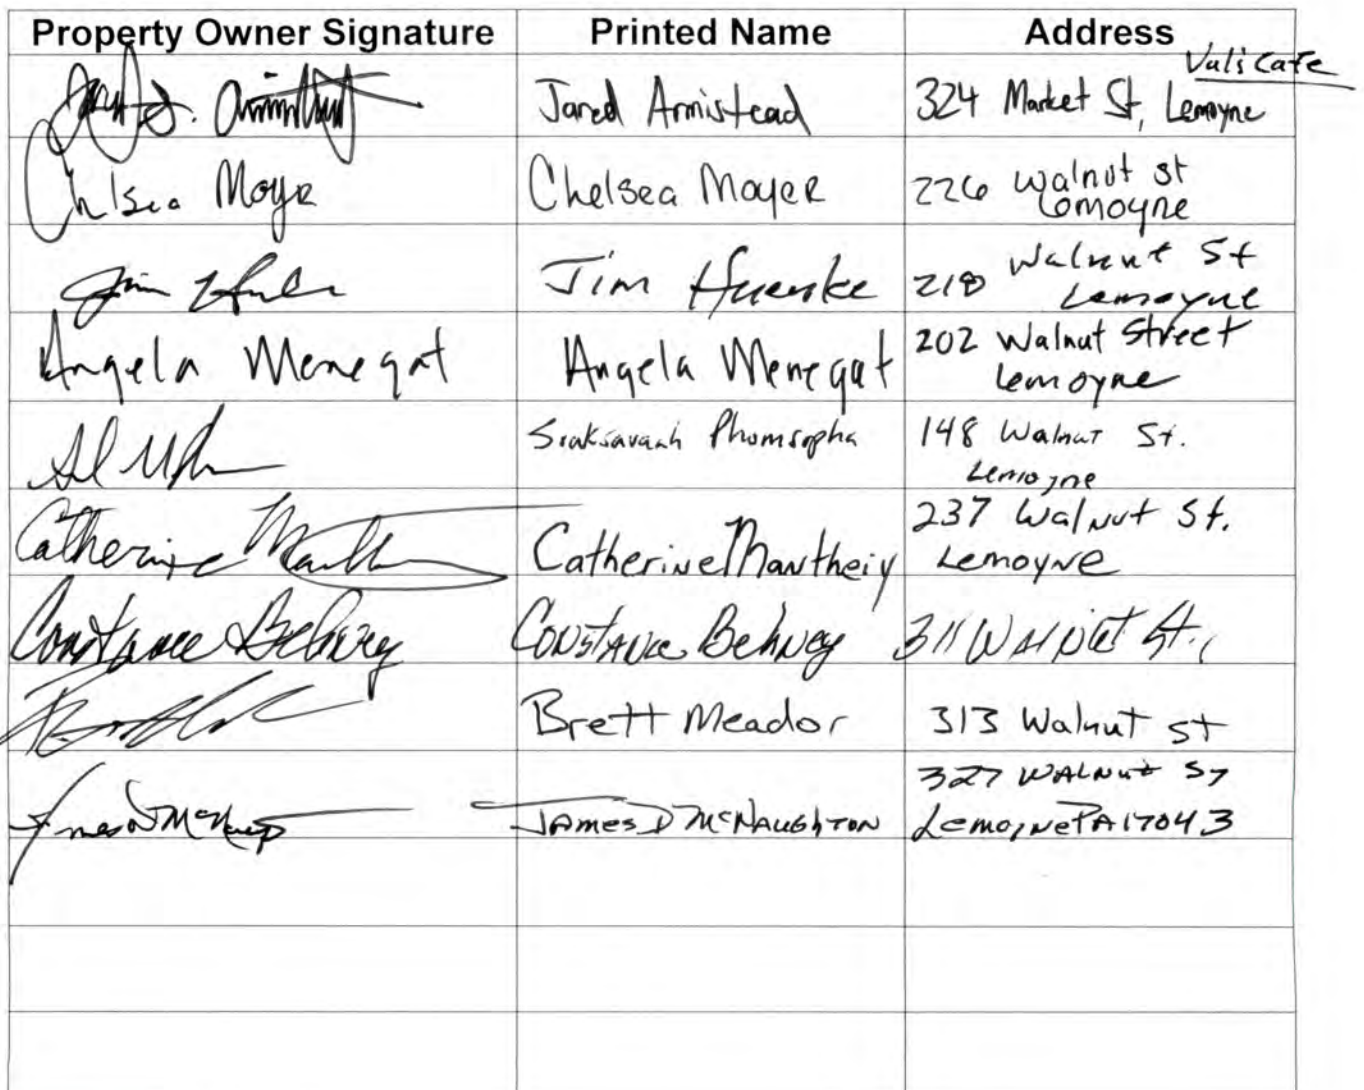 Property Owner Signature Printed Name Address
Vuli Cafe
Jared Armistead 324 Market St, Lemoyne
Chelsea Moyer Chelsea Moyer 226 Walnut st
Lemoyne
Jim Jim Huenke 218 Walnut St
Lemoyne
Angela Menegat Angela Menegat 202 Walnut Street
Lemoyne
Phomsopha 148 Walnut St.
Lemoyne
Catherine Catherine Mantheiy 237 Walnut St.
Lemoyne
Constance Behney Constance Behney 311 Walnut St.,
Brett Meador 313 Walnut St
327 WALNUT ST
James D McNAUGHTON Lemoyne PA 17043